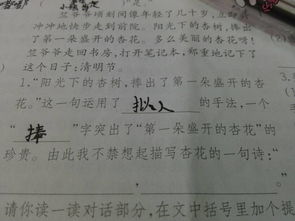 竺爷爷顿时间像年轻了几十岁，立即兴
冲冲地快步走到前院。阳光下的杏树，捧出
了第一朵盛开的杏花。多么美丽的杏花呀！
竺爷爷走回书房，打开笔记本，郑重地记下了
这个日子：清明节。
1.“阳光下的杏树，捧出了第一朵盛开的杏
花。”这一句运用了 拟人 的手法，一个
“ 捧 ”字突出了“第一朵盛开的杏花”的
珍贵。由此我不禁想起描写杏花的一句诗：“
，
请你读一读对话部分，在文中括号里加个提